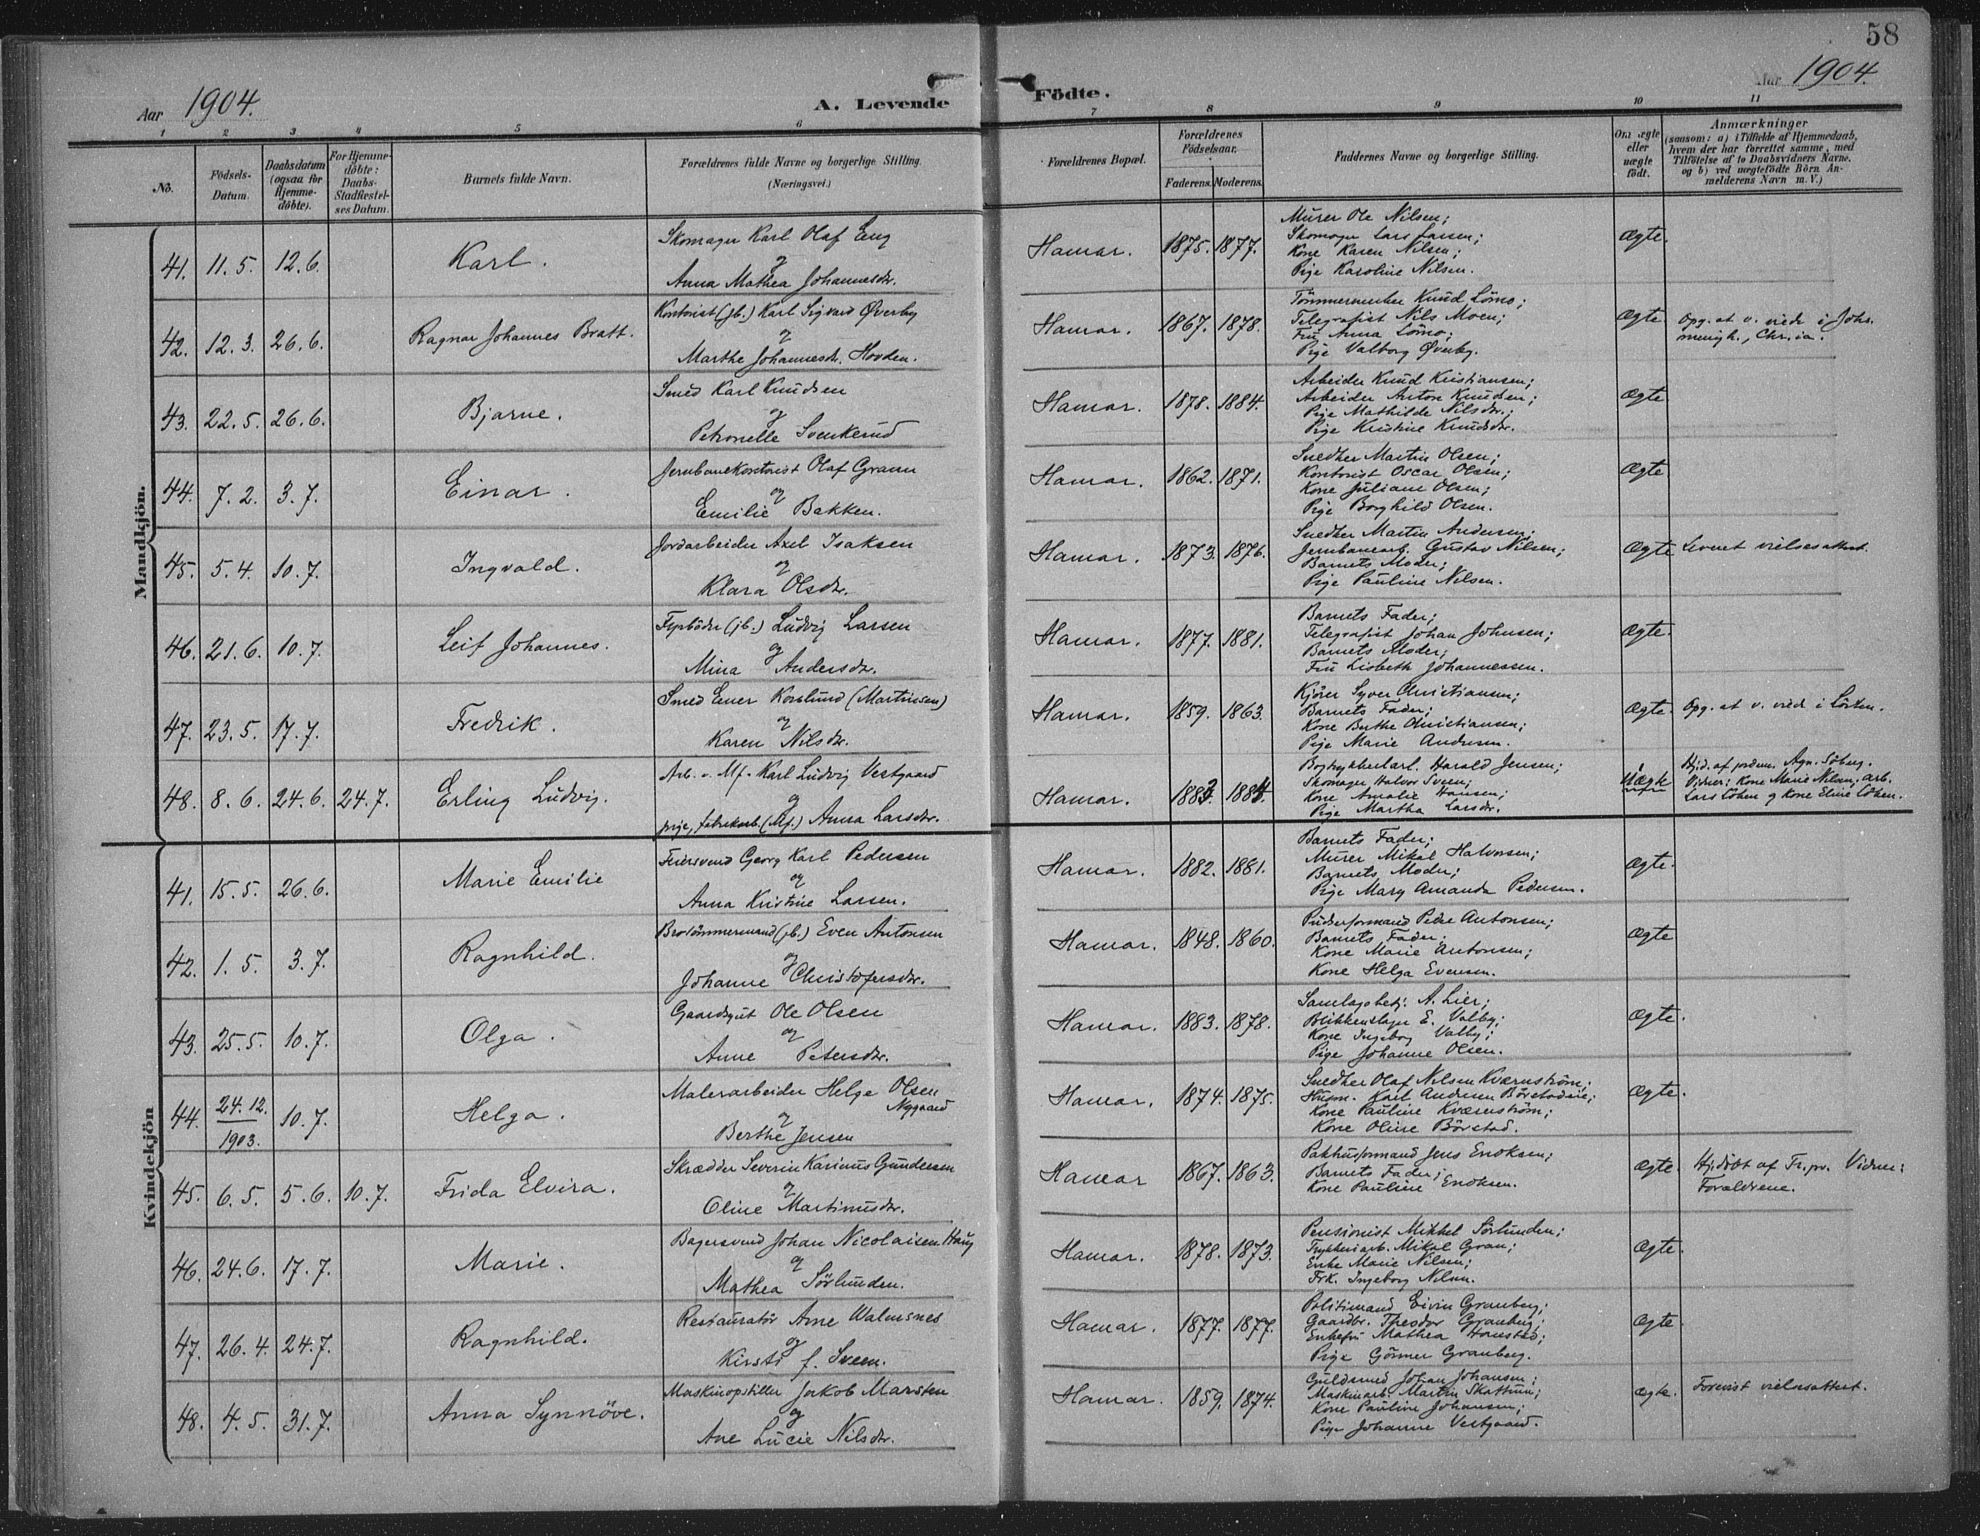 58
Aar 1904. A. Levende Födte. Aar 1904.
1 2 3 4 5 6 7 8 9 10 11
No. Födsels-Datum. Daabsdatum (ogsaa for Hjemme-döbte). For Hjemme-döbte: Daabs-Stadfæstel-ses Datum. Barnets fulde Navn. Forældrenes fulde Navne og borgerlige Stilling. (Næringsvei.) Forældrenes Bopæl. Forældrenes Födselsaar. Faderens. Moderens. Faddernes Navne og borgerlige Stilling. Om ægte eller uægte födt. Anmærkninger (saasom: a) i Tilfælde af Hjemmedaab, hvem der har forrettet samme, med Tilföielse af to Daabsvidners Navne, og b) ved uægtefödte Börn An-melderens Navn m. V.)
Mandkjön.
41. 11. 5. 12. 6. Karl.
Skomager Karl Olaf Eng
og
Anna Mathea Johannesdr.
Hamar. 1875. 1877.
Murer Ole Nilsen;
Skomager Lars Larsen;
Kone Karen Nilsen;
Pige Karoline Nilsen.
Ægte.
42. 12. 3. 26. 6. Ragnar Johannes Bratt.
Kontorist (jb.) Karl Sigvard Øverby
og
Marthe Johannesdr. Hovden.
Hamar. 1867. 1878.
Tömmermester Knud Lömo;
Telegrafist Nils Moen;
Fru Anna Lömo;
Pige Valborg Øverby.
Ægte.
Opg. at v. viede i Johs.
menigh., Chr.ia.
43. 22. 5. 26. 6. Bjarne.
Smed Karl Knudsen
og
Petronelle Svenkerud
Hamar. 1878. 1884.
Arbeider Knud Kristiansen;
Arbeider Anton Knudsen;
Pige Mathilde Nilsdr.;
Pige Kristine Knudsdr.
Ægte
44. 7. 2. 3. 7. Einar.
Jernbanekontorist Olaf Gravn
og
Emilie Bakken.
Hamar. 1862. 1871.
Snedker Martin Olsen;
Kontorist Oscar Olsen;
Kone Juliane Olsen;
Pige Borghild Olsen.
Ægte
45. 5. 4. 10. 7. Ingvald.
Jordarbeider Axel Isaksen
og
Klara Olsdr.
Hamar. 1873. 1876.
Snedker Martin Andersen;
Jernbanearb. Gustav Nilsen;
Barnets Moder;
Pige Pauline Nilsen.
Ægte
Leveret vielsesattest.
46. 21. 6. 10. 7. Leif Johannes.
Fyrböder (jb.) Ludvig Larsen
og
Mina Andersdr.
Hamar. 1877. 1881.
Barnets Fader;
Telegrafist Johan Johnsen;
Barnets Moder;
Fru Lisbeth Johannessen.
Ægte.
47. 23. 5. 17. 7. Fredrik.
Smed Ener Korslund (Martinsen)
og
Karen Nilsdr.
Hamar. 1859. 1863.
Kjörer Syver Christiansen;
Barnets Fader;
Kone Berthe Christiansen;
Pige Marie Andresen.
Ægte.
Opg. at v. viede i Löiten.
48. 8. 6. 24. 6. 24. 7. Erling Ludvig.
Arb. v. Mf. Karl Ludvig Vestgaard
og
pige, fabrikarb. (Mf.) Anna Larsdr.
Hamar. 1883. 1884.
Bogtrykkerlærl. Harald Jensen;
Skomager Halvor Sveen;
Kone Amalie Hansen;
Pige Martha Larsdr.
Uægte
Hjd. af jordm. Agn. Söberg.
Vidner: Kone Marie Nilsen, arb.
Lars Löken og Kone Eline Löken.
Kvindekjön
41. 15. 5. 26. 6. Marie Emilie
Feiersvend Georg Karl Pedersen
og
Anna Kristine Larsen.
Hamar. 1882. 1881.
Barnets Fader;
Murer Mikal Halvorsen;
Barnets Moder;
Pige Mary Amanda Pedersen.
Ægte.
42. 1. 5. 3. 7. Ragnhild.
Brotömmermand (jb.) Even Antonsen
og
Johanne Christofersdr.
Hamar. 1848. 1860.
Pudserformand Peder Antonsen;
Barnets Fader;
Kone Marie Antonsen;
Kone Helga Evensen.
Ægte
43. 25. 5. 10. 7. Olga.
Gaardsgut Ole Olsen
og
Anne Petersdr.
Hamar. 1883. 1878.
Samlagsbetj. A. Lier;
Blikkenslager E. Valby;
Kone Ingeborg Valby;
Pige Johanne Olsen.
Ægte.
44. 24. 12. 1903. 10. 7. Helga.
Malerarbeider Helge Olsen Nygaard
og
Berthe Jensen
Hamar. 1874. 1875.
Snedker Olaf Nilsen Kværnström;
Husm. Karl Andersen Börstadeie;
Kone Pauline Kværnström;
Kone Oline Börstad.
Ægte.
45. 6. 5. 5. 6. 10. 7. Frida Elvira.
Skrædder Severin Karinus Gundersen
og
Oline Martinusdr.
Hamar 1867. 1863.
Pakhusformand Jens Enoksen;
Barnets Fader;
Kone Pauline Enoksen.
Ægte
Hjdöbt af Fr. pr. Vidner:
Forældrene.
46. 24. 6. 17. 7. Marie.
Bagersvend Johan Nicolaisen Haug
og
Mathea Sörlunden.
Hamar. 1878. 1873.
Pensionist Mikkel Sörlunden;
Trykkeriarb. Mikal Gran;
Enke Marie Nilsen;
Frk. Ingeborg Nilsen.
Ægte.
47. 26. 4. 24. 7. Ragnhild.
Restauratör Arne Walmsnes
og
Kirsti f. Sveen.
Hamar. 1877. 1877.
Politimand Eivin Granberg;
Gaardbr. Theodor Granberg;
Enkefru Mathea Hansted;
Pige Görner Granberg.
Ægte.
48. 4. 5. 31. 7. Anna Synnöve.
Maskinopstiller Jakob Marsten
og
Ane Lucie Nilsdr.
Hamar. 1859. 1874.
Guldsmed Johan Johansen;
Maskinarb. Martin Skattum;
Kone Pauline Johansen;
Pige Johanne Vestgaard.
Ægte.
Forevist vielsesattest.